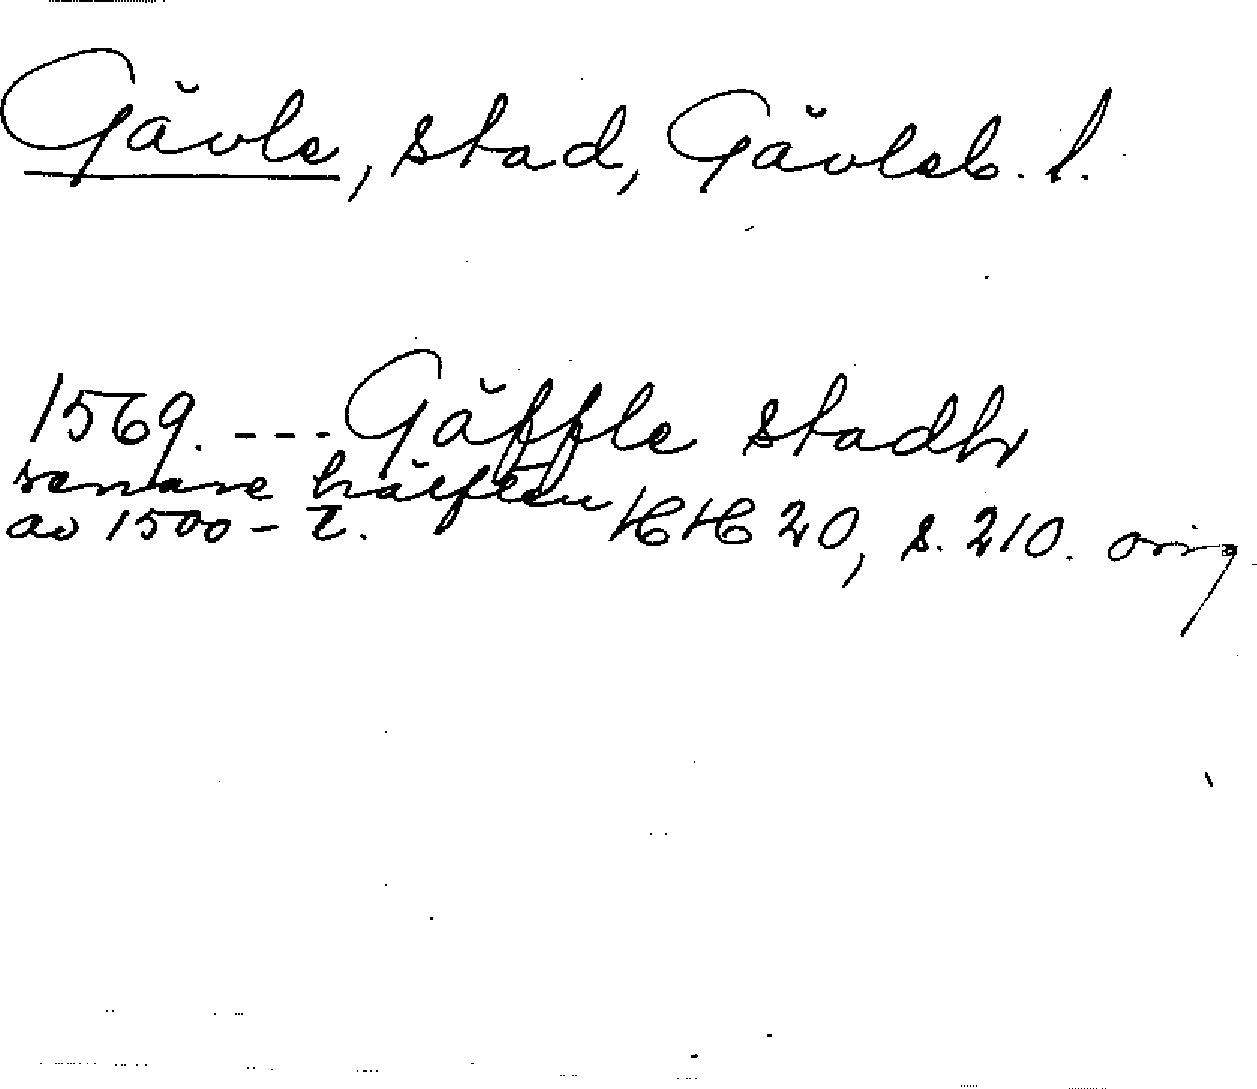 Gävle, stad, Gävleb. l.
1569. --- Gäffle stadh
senare hälften
av 1500-t. HH 20, s. 210. orig.